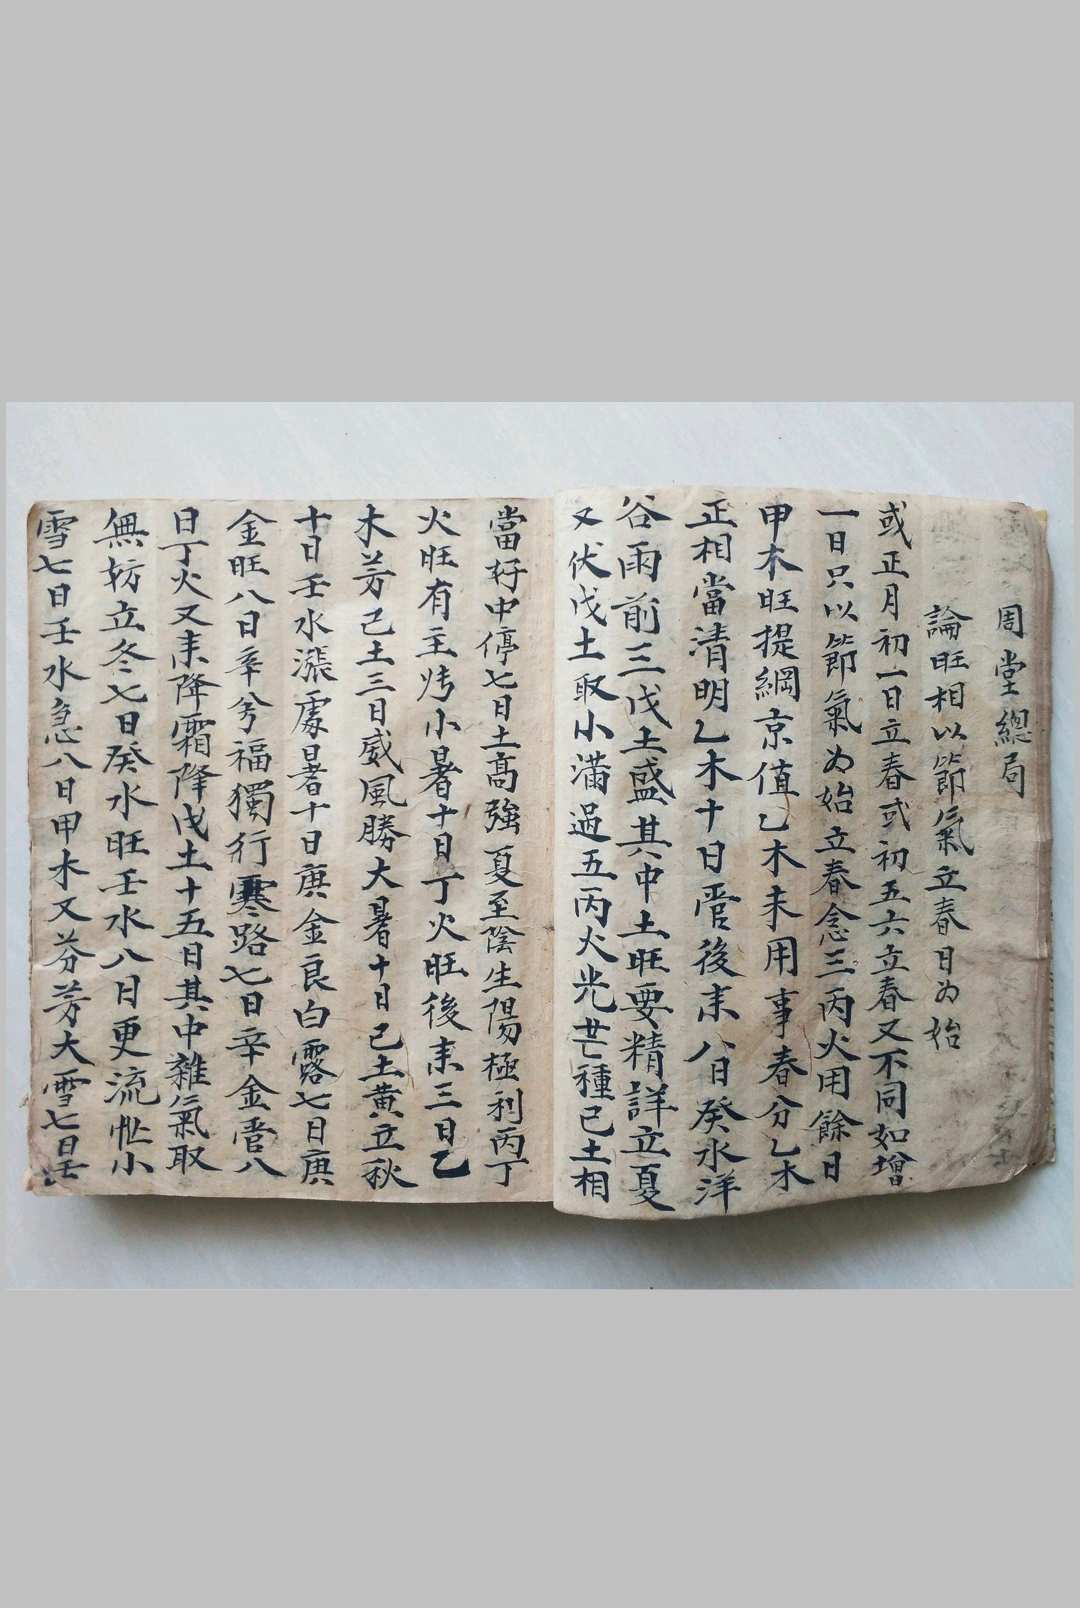 周堂總局
論旺相以節氣立春日为始
或正月初一日立春或初五六立春又不同如增
一日只以節氣为始立春念三丙火用餘日
甲木旺提綱京值乙木未用事春分乙木
正相當清明乙木十日管後耒八日癸水洋
谷雨前三戊土盛其中土旺要精詳立夏
又伏戊土取小滿過五丙火光芒種己土相
當好中停七日土高強夏至陰生陽極利丙丁
火旺有主烤小暑十日丁火旺後耒三日乙
木芳己土三日威風勝大暑十日己土黄立秋
十日壬水漲處暑十日庚金良白露七日庚
金旺八日辛兮福獨行寒路七日辛金管八
日丁火又耒降霜降戊土十五日其中雜氣取
無妨立冬七日癸水旺壬水八日更流忙小
雪七日壬水急八日甲木又芬芳大雪七日壬